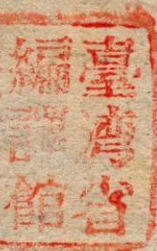 臺灣省
編譯館